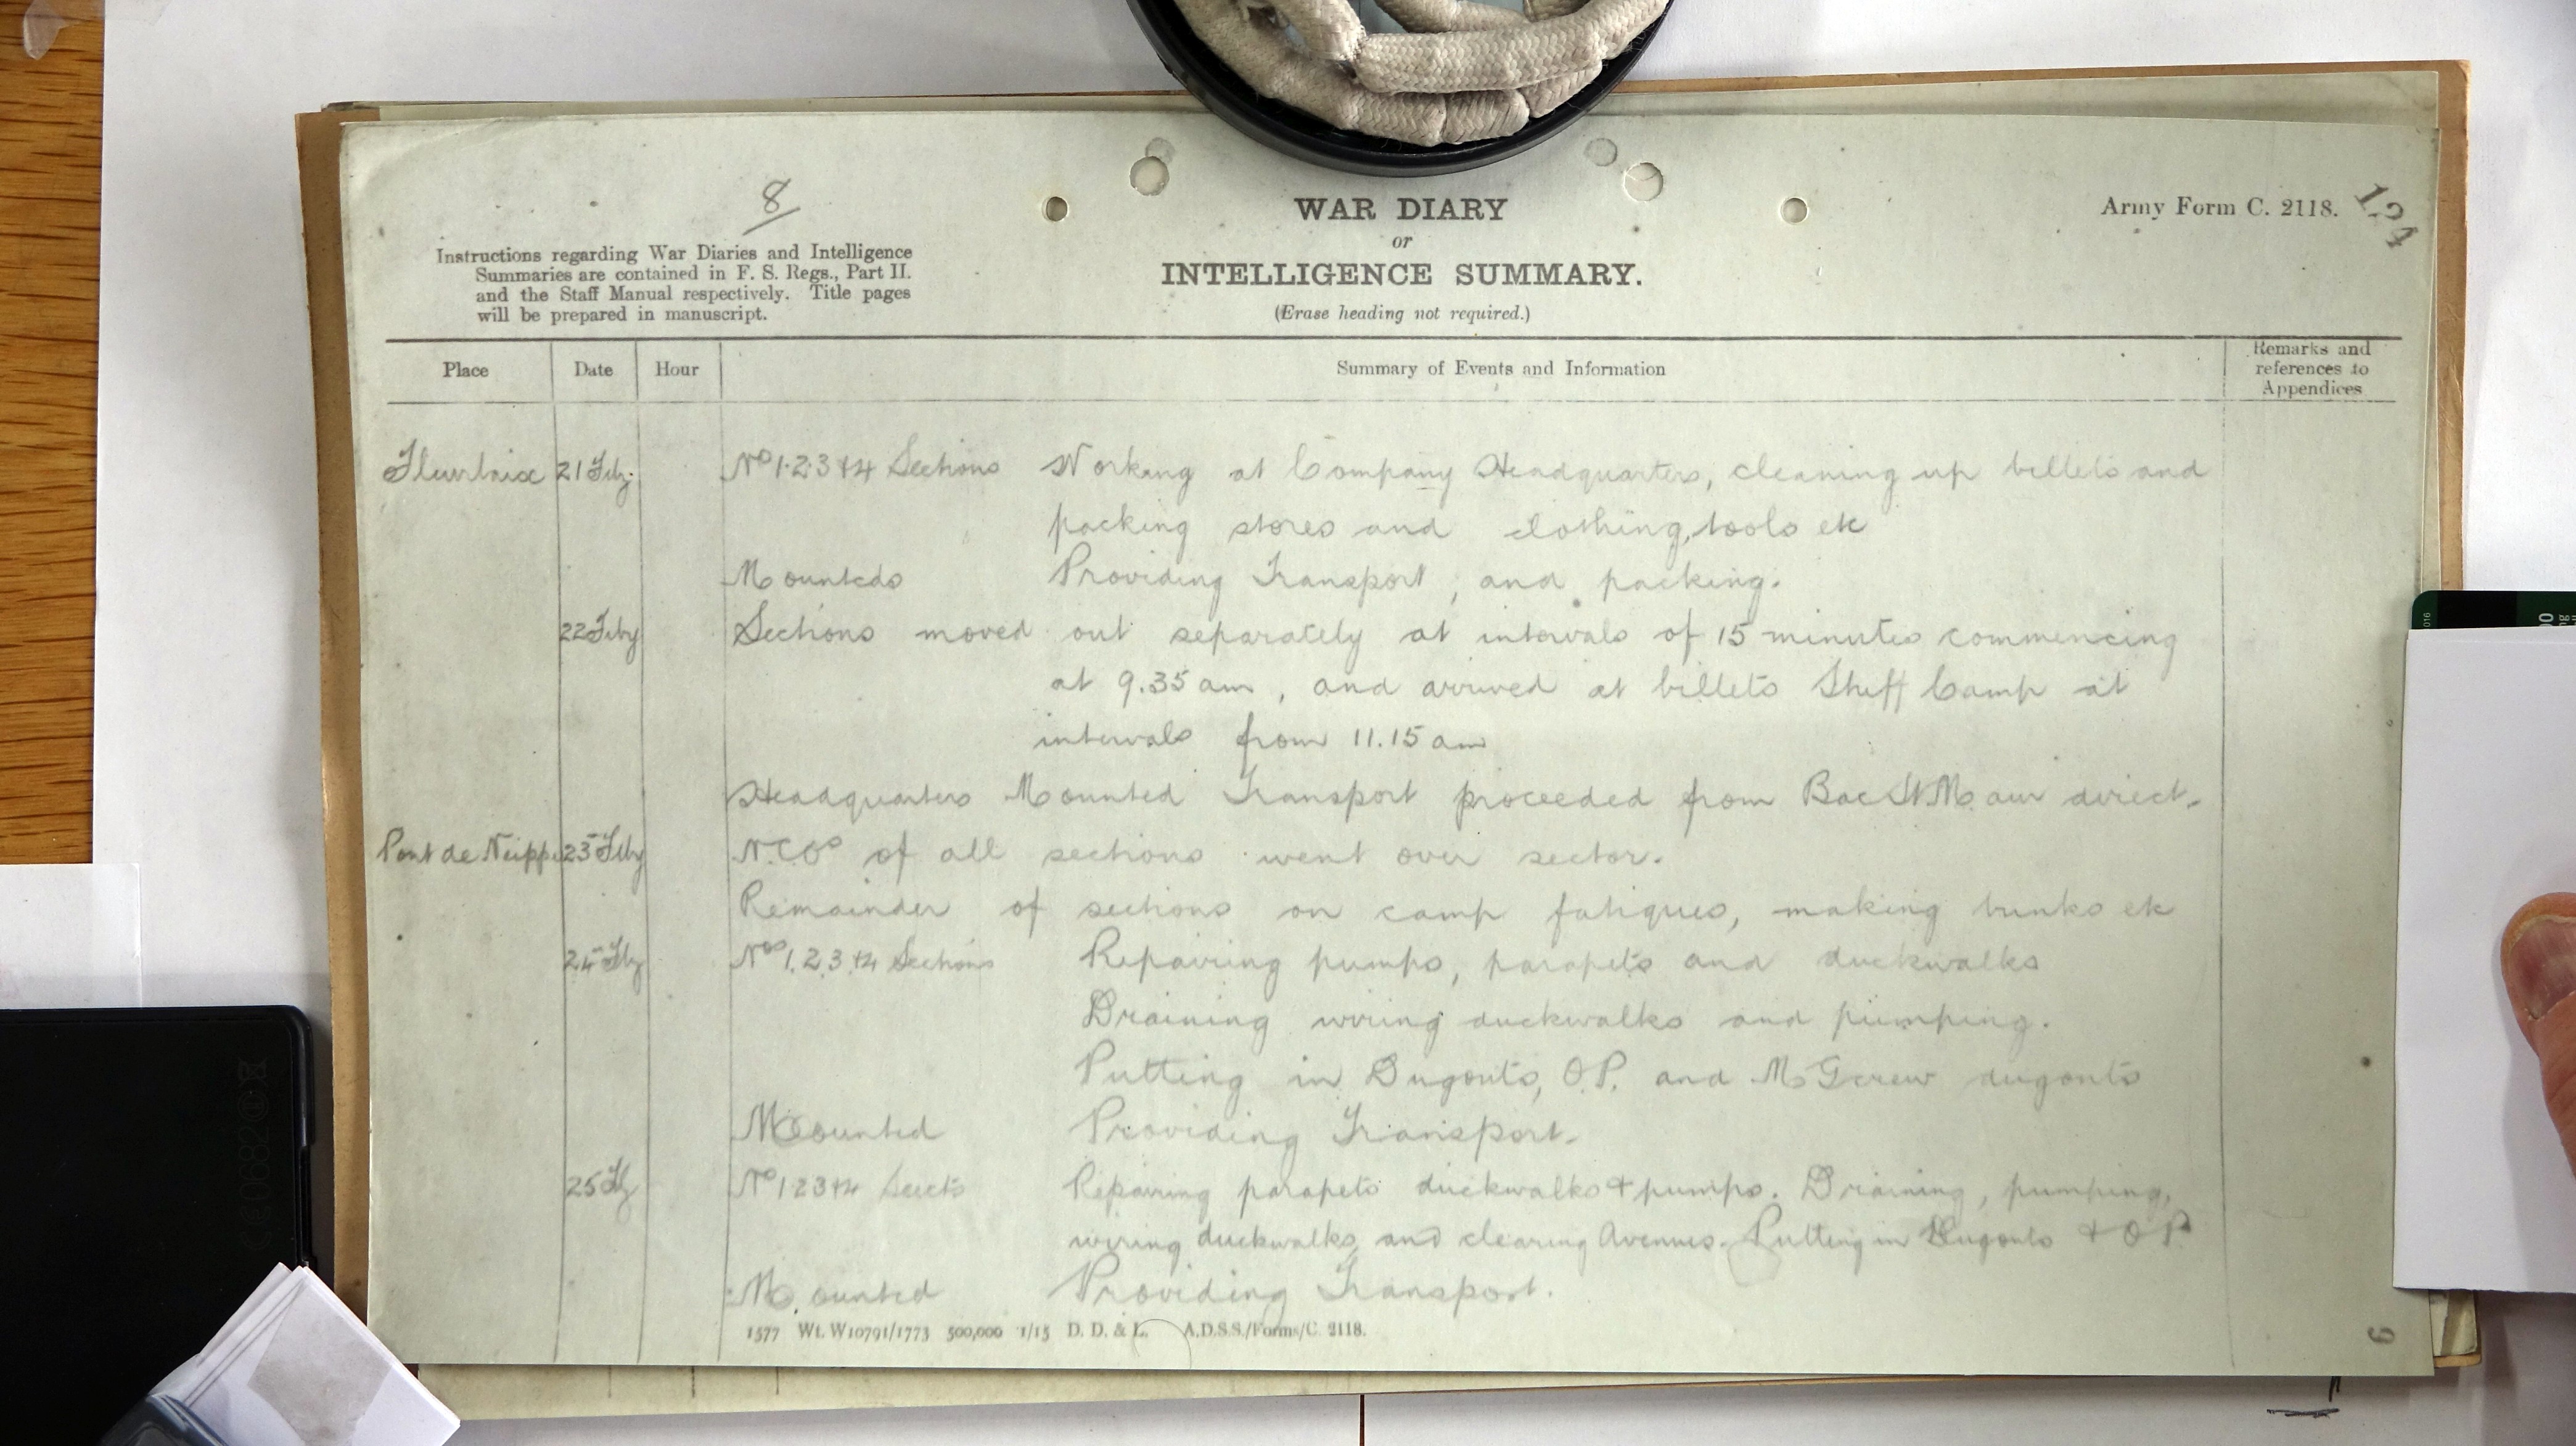 8
WAR DIARY
or
INTELLIGENCE SUMMARY.
(Erase heading not required.)
Army Form C. 2118.
124
Instructions regarding War Diaries and Intelligence
Summaries are contained in F. S. Regs., Part II.
and the Staff Manual respectively. Title pages
will be prepared in manuscript.
Place Date Hour Summary of Events and Information Remarks and
references to
Appendices
Fleurbaix 21 Feby. No 1.2.3 & 4 Sections Working at Company Headquarters, cleaning up billets and
packing stores and clothing, tools etc
Mounteds Providing Transport, and packing.
22 Feby Sections moved out separately at intervals of 15 minutes commencing
at 9.35 am, and arrived at billets Camp at
intervals from 11.15 am
Headquarters Mounted Transport proceeded from Bac St Maur direct.
Pont de Neippe 23 Feby N.C.Os of all sections went over sector.
Remainder of sections on camp fatigues, making bunks etc
24 Feby Nos 1.2.3 & 4 Sections Repairing pumps, parapets and duckwalks
Draining wiring duckwalks and pumping.
Putting in Dugouts, O.P. and M G crew dugouts
Mounted Providing Transport.
25 Fby No 1.2.3 & 4 Sects Repairing parapets duckwalks & pumps. Draining, pumping,
wiring duckwalks, and clearing Avenues. Putting in Dugouts & O P.
Mounted Providing Transport.
1577 Wt. W10791/1773 500,000 1/15 D. D. & L. A.D.S.S./Forms/C. 2118.
9